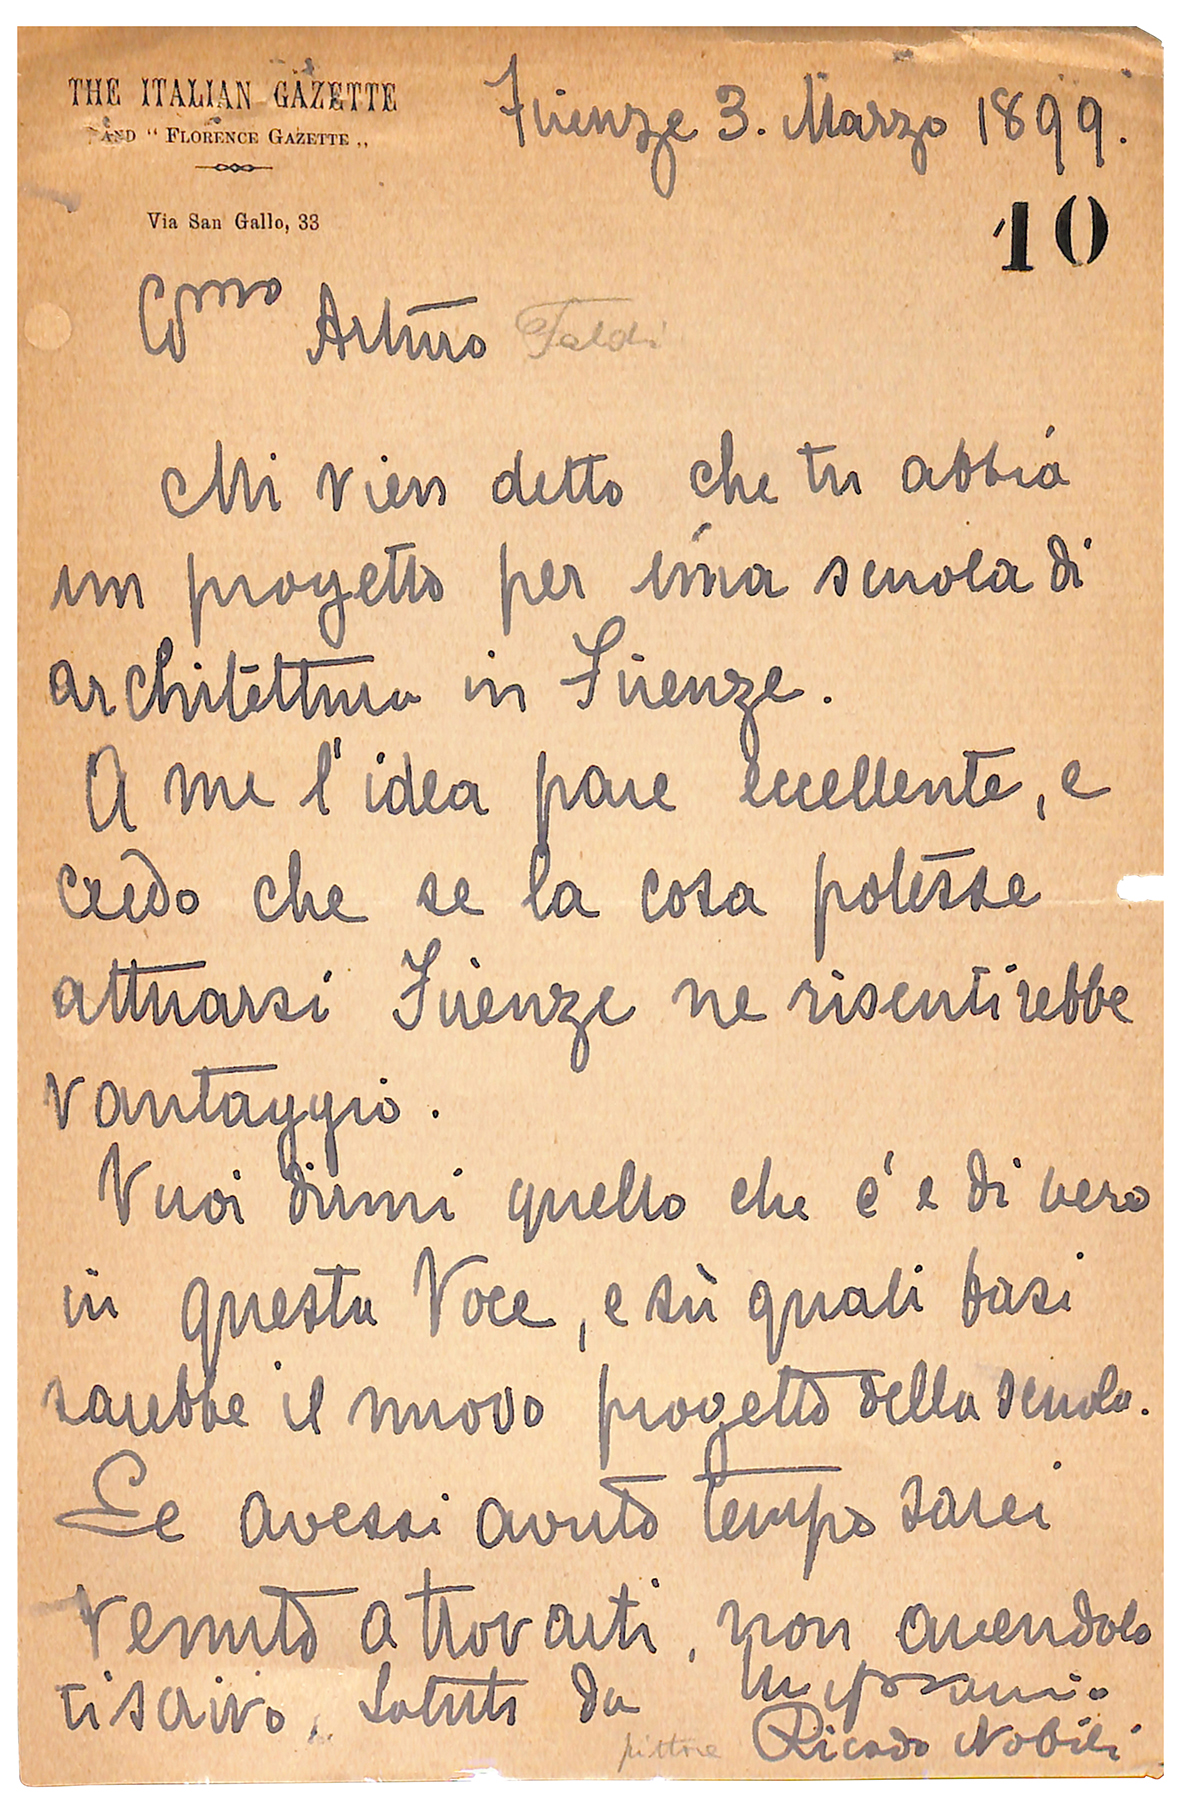 THE ITALIAN GAZETTE
AND "FLORENCE GAZETTE„
Via San Gallo, 33
Firenze 3. Marzo 1899.
10
Cmo Arturo Faldi
Mi vien detto che tu abbia
un progetto per una scuola di
architettura in Firenze.
A me l'idea pare eccellente, e
credo che se la cosa potesse
attuarsi Firenze ne risentirebbe
vantaggio.
Vuoi dirmi quello che c'è di vero
in questa Voce, e sù quali basi
sarebbe il nuovo progetto della scuola.
Se avessi avuto tempo sarei
venuto a trovarti, non avendolo
ti scrivo. Saluti da
pittore Ricardo Nobili